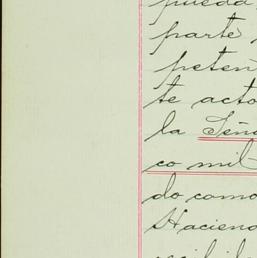 pueda
parte
peten
te acto
la Seño
co mil
do como
Haciend